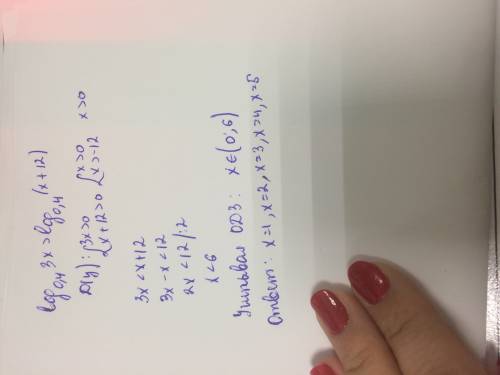 log₀,₄ 3x > log₀,₄ (x+12)
D(y): { 3x>0 { x>0 x>0
{ x+12>0 { x>-12
3x < x+12
3x - x < 12
2x < 12 |:2
x < 6
Учитывая ОДЗ: x∈(0;6)
Ответ: x=1, x=2, x=3, x=4, x=5